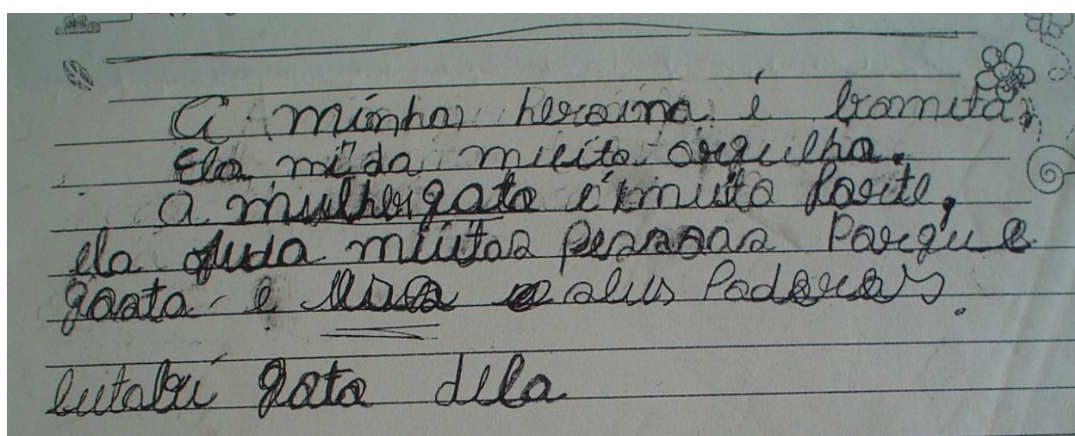 A minha heroina é bomita,
Ela mi da muito orgulho.
A mulher gato é muito forte,
ela ajuda muitas pessoas Porque
goata e usa seus Poderes.
eutabẽi goto dela